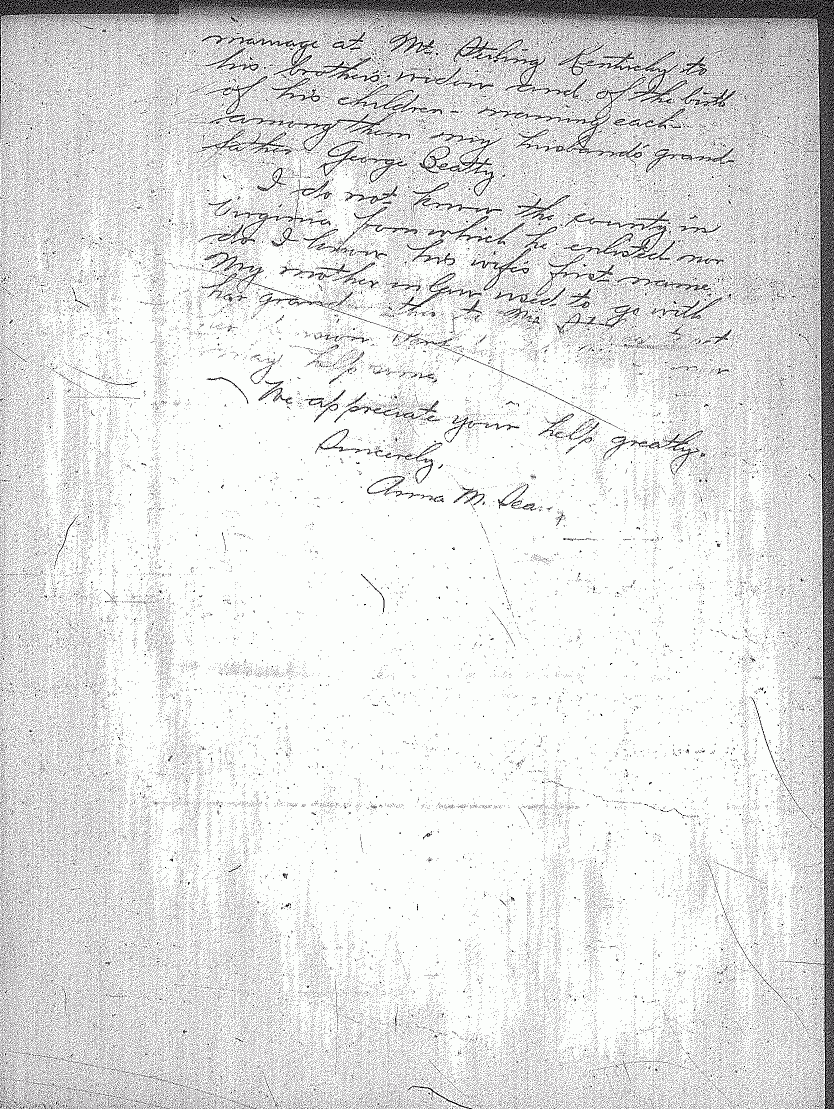 marriage at Mt. Sterling Kentucky to
his brothers widow and of the birth
of his children - naming each -
among them my husband's grand-
father George Beatty.
I do not know the county in
Virginia from which he enlisted nor
do I know his wifes first name.
My mother in law used to go with
her grand this to the
own
may help some.
We appreciate your help greatly.
Sincerely,
Anna M.